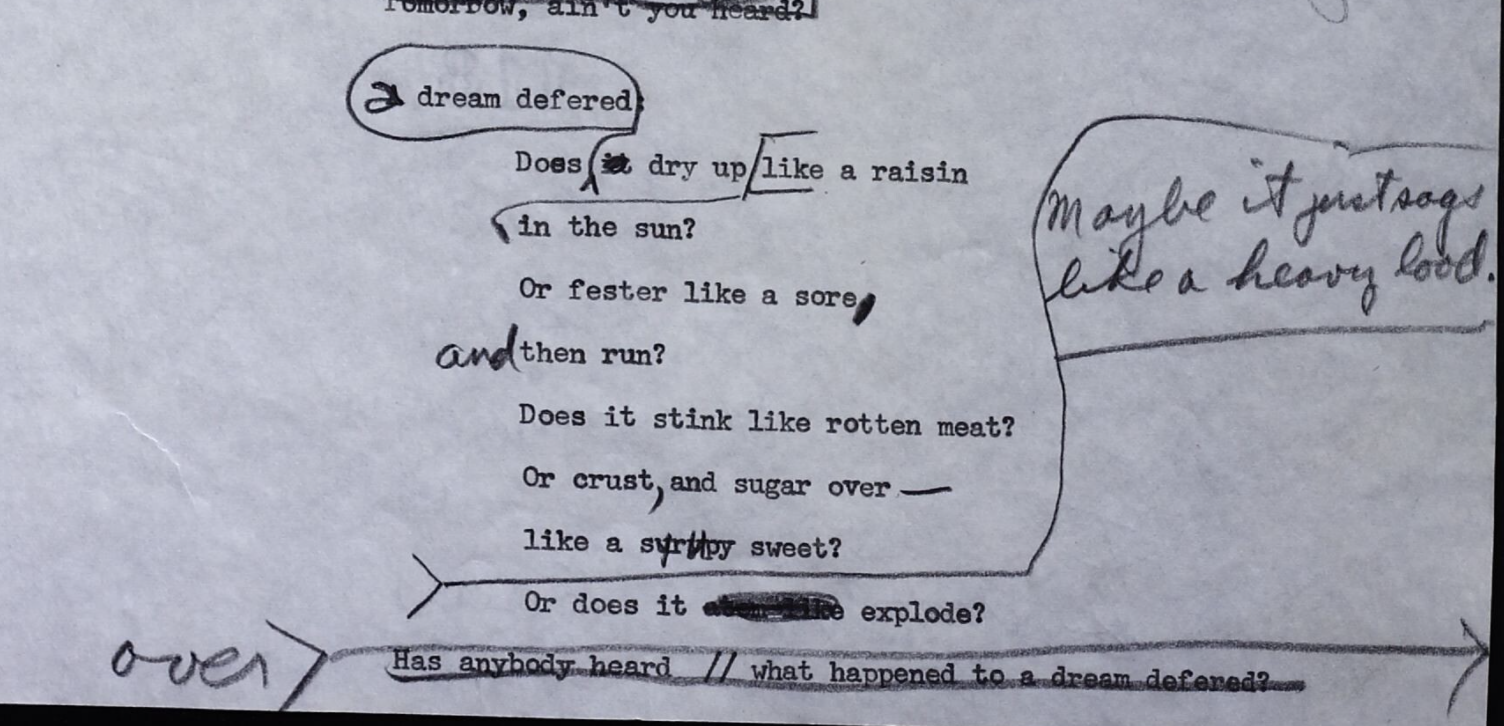 Tomorrow, ain't you heard?
a dream defered
Does it dry up like a raisin
in the sun?
Or fester like a sore,
and then run?
Does it stink like rotten meat?
Or crust, and sugar over —
like a syrupy sweet?
Maybe it just sags
like a heavy load.
Or does it explode?
over
Has anybody heard // what happened to a dream defered?